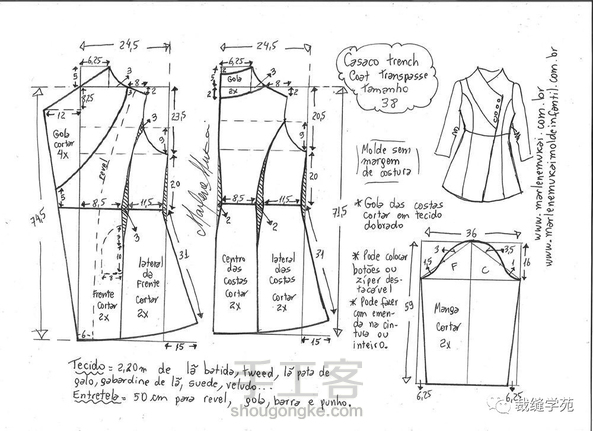 24,5
24,5
6,25
6,25
3
8
3
2
3
8
2
2
5
5
5
8,25
12
Gola
2x
Gola
cortar
4x
revel
23,5
20,5
9
9
20
20
5
8,5
11,5
8,5
11,5
3
2
3
2
74,5
71,5
31
31
8
6
15
15
Frente
cortar
2x
lateral
da
Frente
Cortar
2x
Centro
das
Costas
Cortar
2x
lateral
das
Costas
Cortar
2x
Marlene Mukai
Casaco trench
Coat Transpasse
Tamanho
38
Molde sem
margem
de costura
www.marlenemukai.com.br
www.marlenemukaimoldeinfantil.com.br
* Gola das costas
cortar em tecido
dobrado
* Pode colocar
botões ou
zíper des-
tacável
* Pode fazer
com emen-
da na cin-
tura ou
inteiro.
36
3
3,5
1,5
16
F
C
59
Manga
Cortar
2x
6,25
6,25
Tecido = 2,20m de lã batida, tweed, lã pata de
galo, gabardine de lã, suede, veludo...
Entretela = 50 cm para revel, gola, barra e punho.
手工客
shougongke.com
裁缝学苑